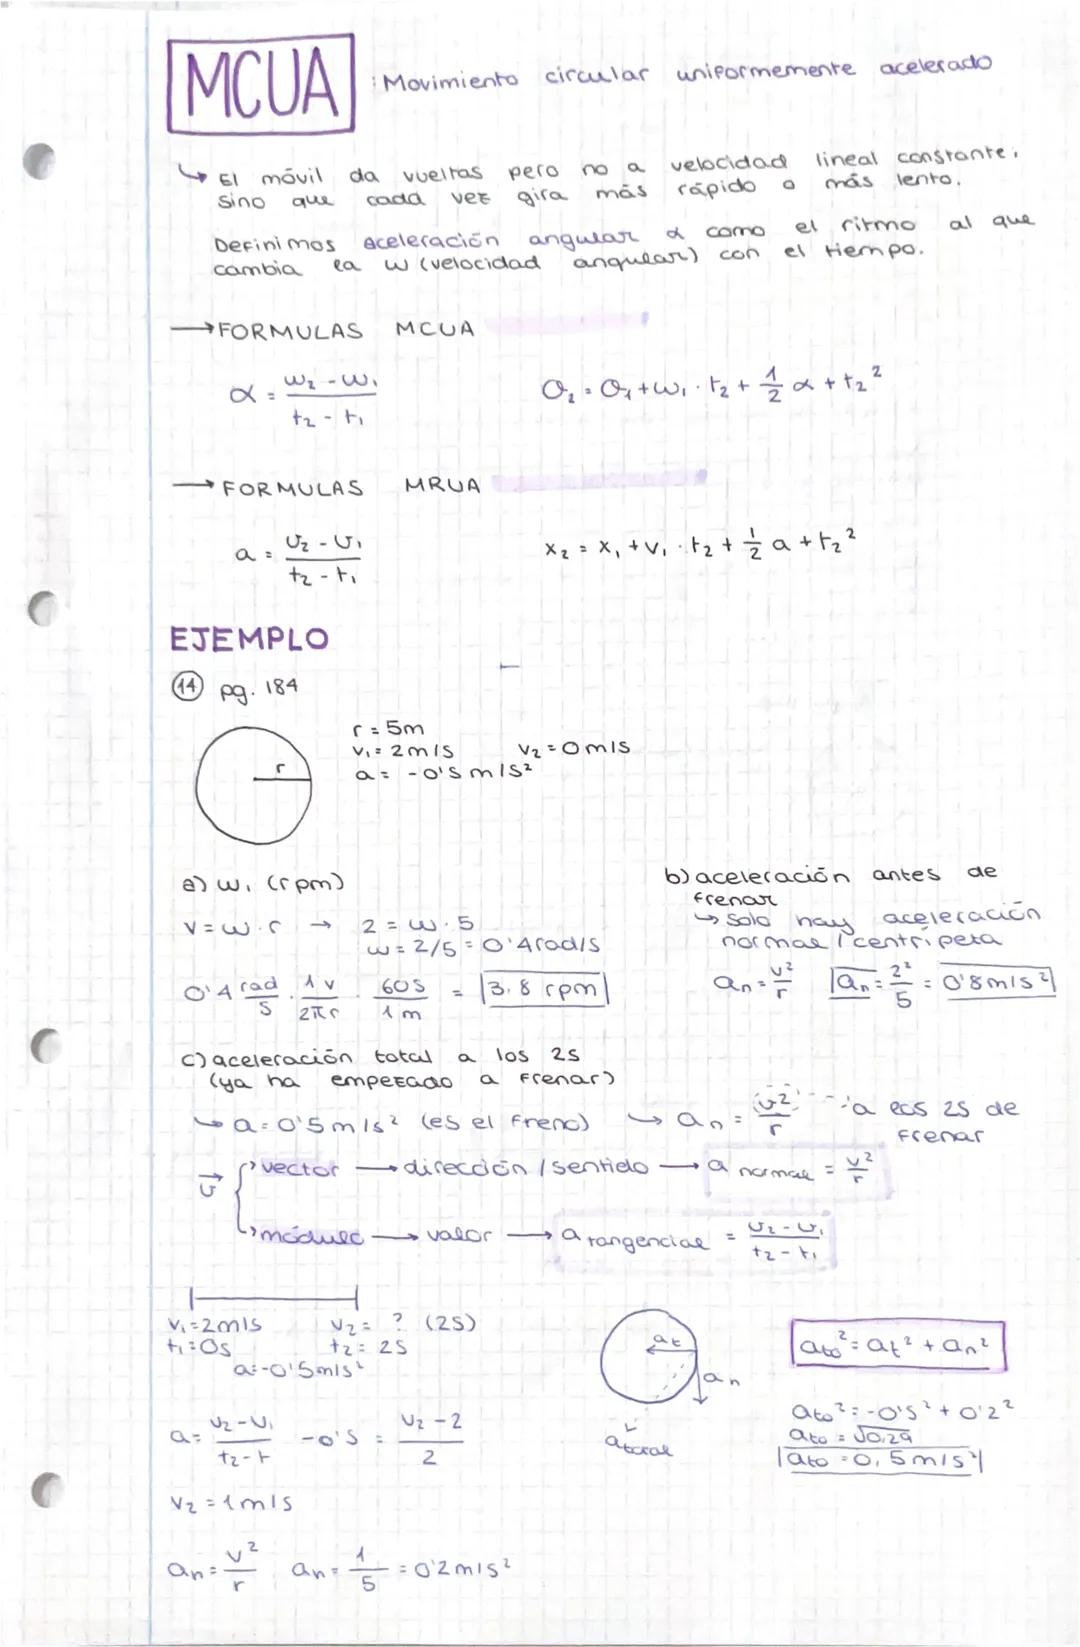 MCUA : Movimiento circular uniformemente acelerado
↳ El móvil da vueltas pero no a velocidad lineal constante,
sino que cada vez gira más rápido o más lento.
Definimos aceleración angular α como el ritmo al que
cambia la w (velocidad angular) con el tiempo.
→ FORMULAS MCUA
α = (w₂ - w₁)/(t₂ - t₁)    O₂ = O₁ + w₁ · t₂ + 1/2 α + t₂²
→ FORMULAS MRUA
a = (v₂ - v₁)/(t₂ - t₁)    x₂ = x₁ + v₁ · t₂ + 1/2 a + t₂²
EJEMPLO
14 pg. 184
r
r = 5m
v₁ = 2m/s    v₂ = 0m/s
a = -0'5 m/s²
a) w₁ (rpm)
v = w · r → 2 = w · 5
w = 2/5 = 0'4rad/s
0'4 rad/s · 1v/2πr · 60s/1m = 3.8 rpm
b) aceleración antes de
frenar
↳ solo hay aceleración
normal / centrípeta
an = v²/r    an = 2²/5 = 0'8m/s²
c) aceleración total a los 2s
(ya ha empezado a frenar)
↳ a = 0'5m/s² (es el freno) → an = v²/r ---- a los 2s de
frenar
v⃗ { vector → dirección / sentido → a normal = v²/r
módulo → valor → a tangencial = (v₂ - v₁)/(t₂ - t₁)
v₁ = 2m/s    v₂ = ? (2s)
t₁ = 0s    t₂ = 2s
a = -0'5m/s²
a = (v₂ - v₁)/(t₂ - t)    -0'5 = (v₂ - 2)/2
v₂ = 1m/s
an = v²/r    an = 1/5 = 0'2m/s²
at
an
atotal
ato² = at² + an²
ato² = -0'5² + 0'2²
ato = √0,29
ato = 0,5m/s²